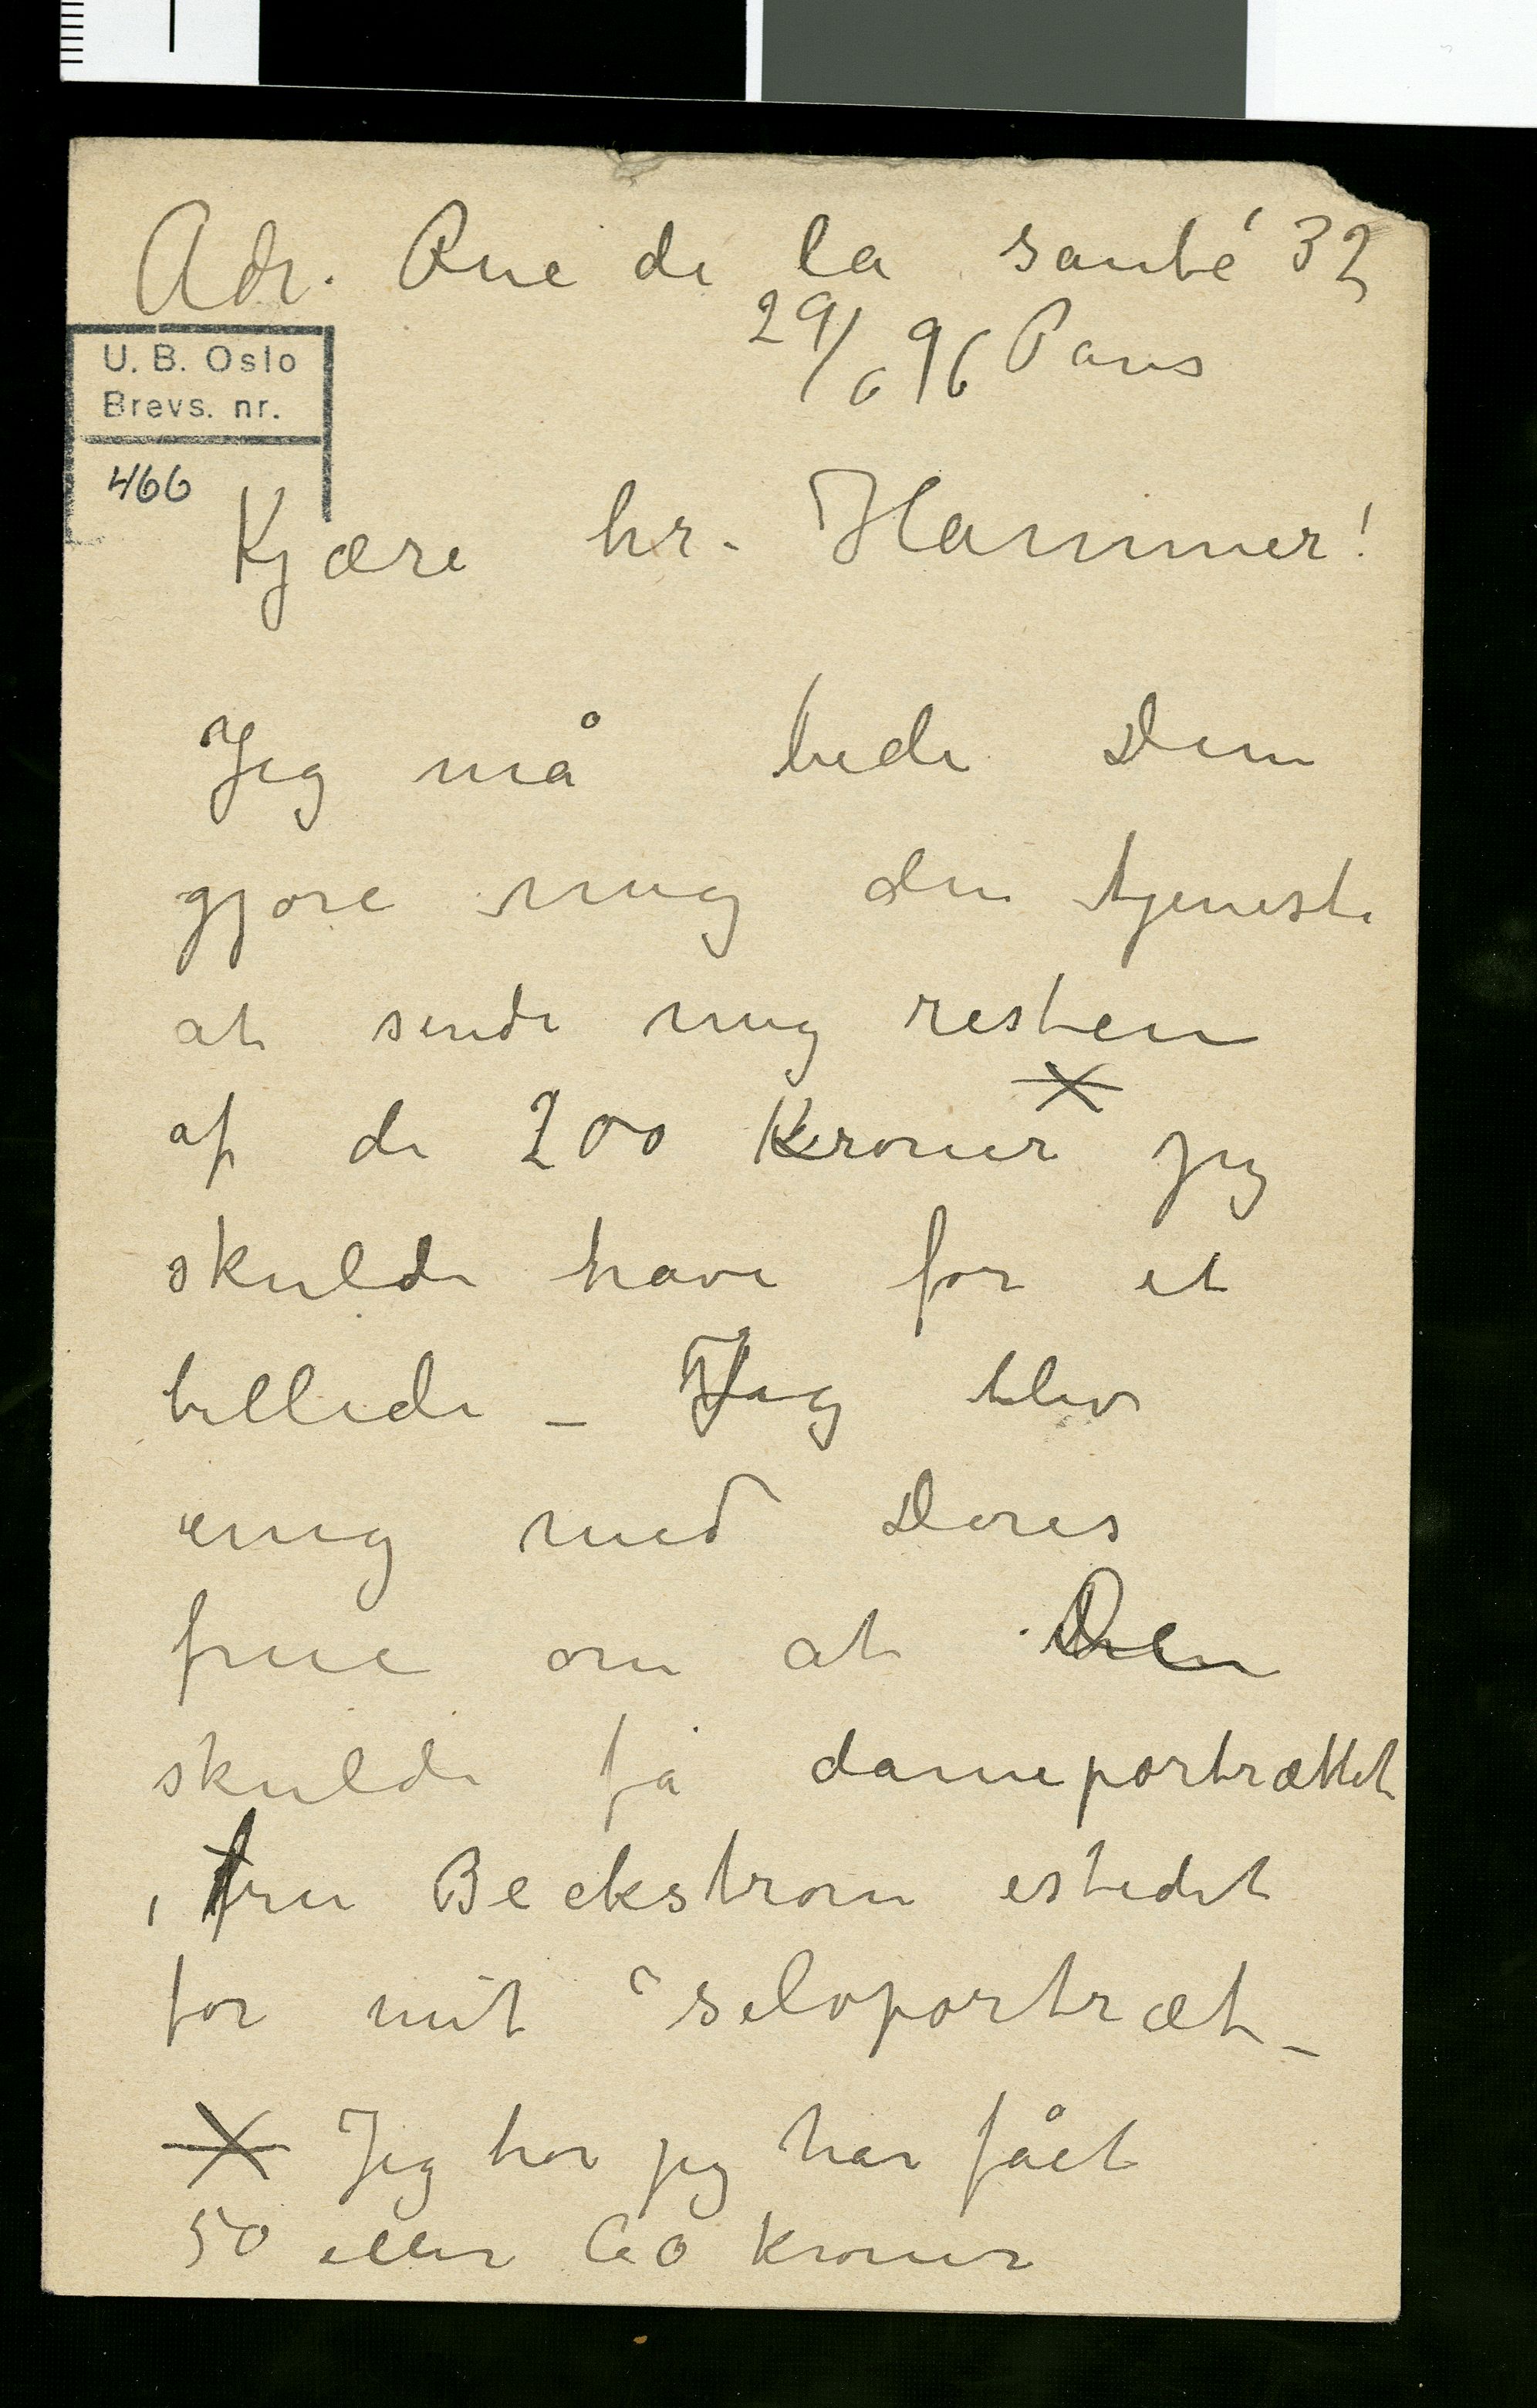 Adr. Rue de la santé 32
29/6 96 Paris
U. B. Oslo
Brevs. nr.
466
Kjære hr. Hammer!
Jeg må bede Dem
gjøre mig den tjeneste
at sende mig resten
af de 200 Kroner X jeg
skulde have for et
billede – Jeg blev
enig med Deres
frue om at De
skulde få dameportrættet
, fru Beckstrom istedet
for mit selvportræt –
X Jeg tror jeg har fået
50 eller 60 Kroner